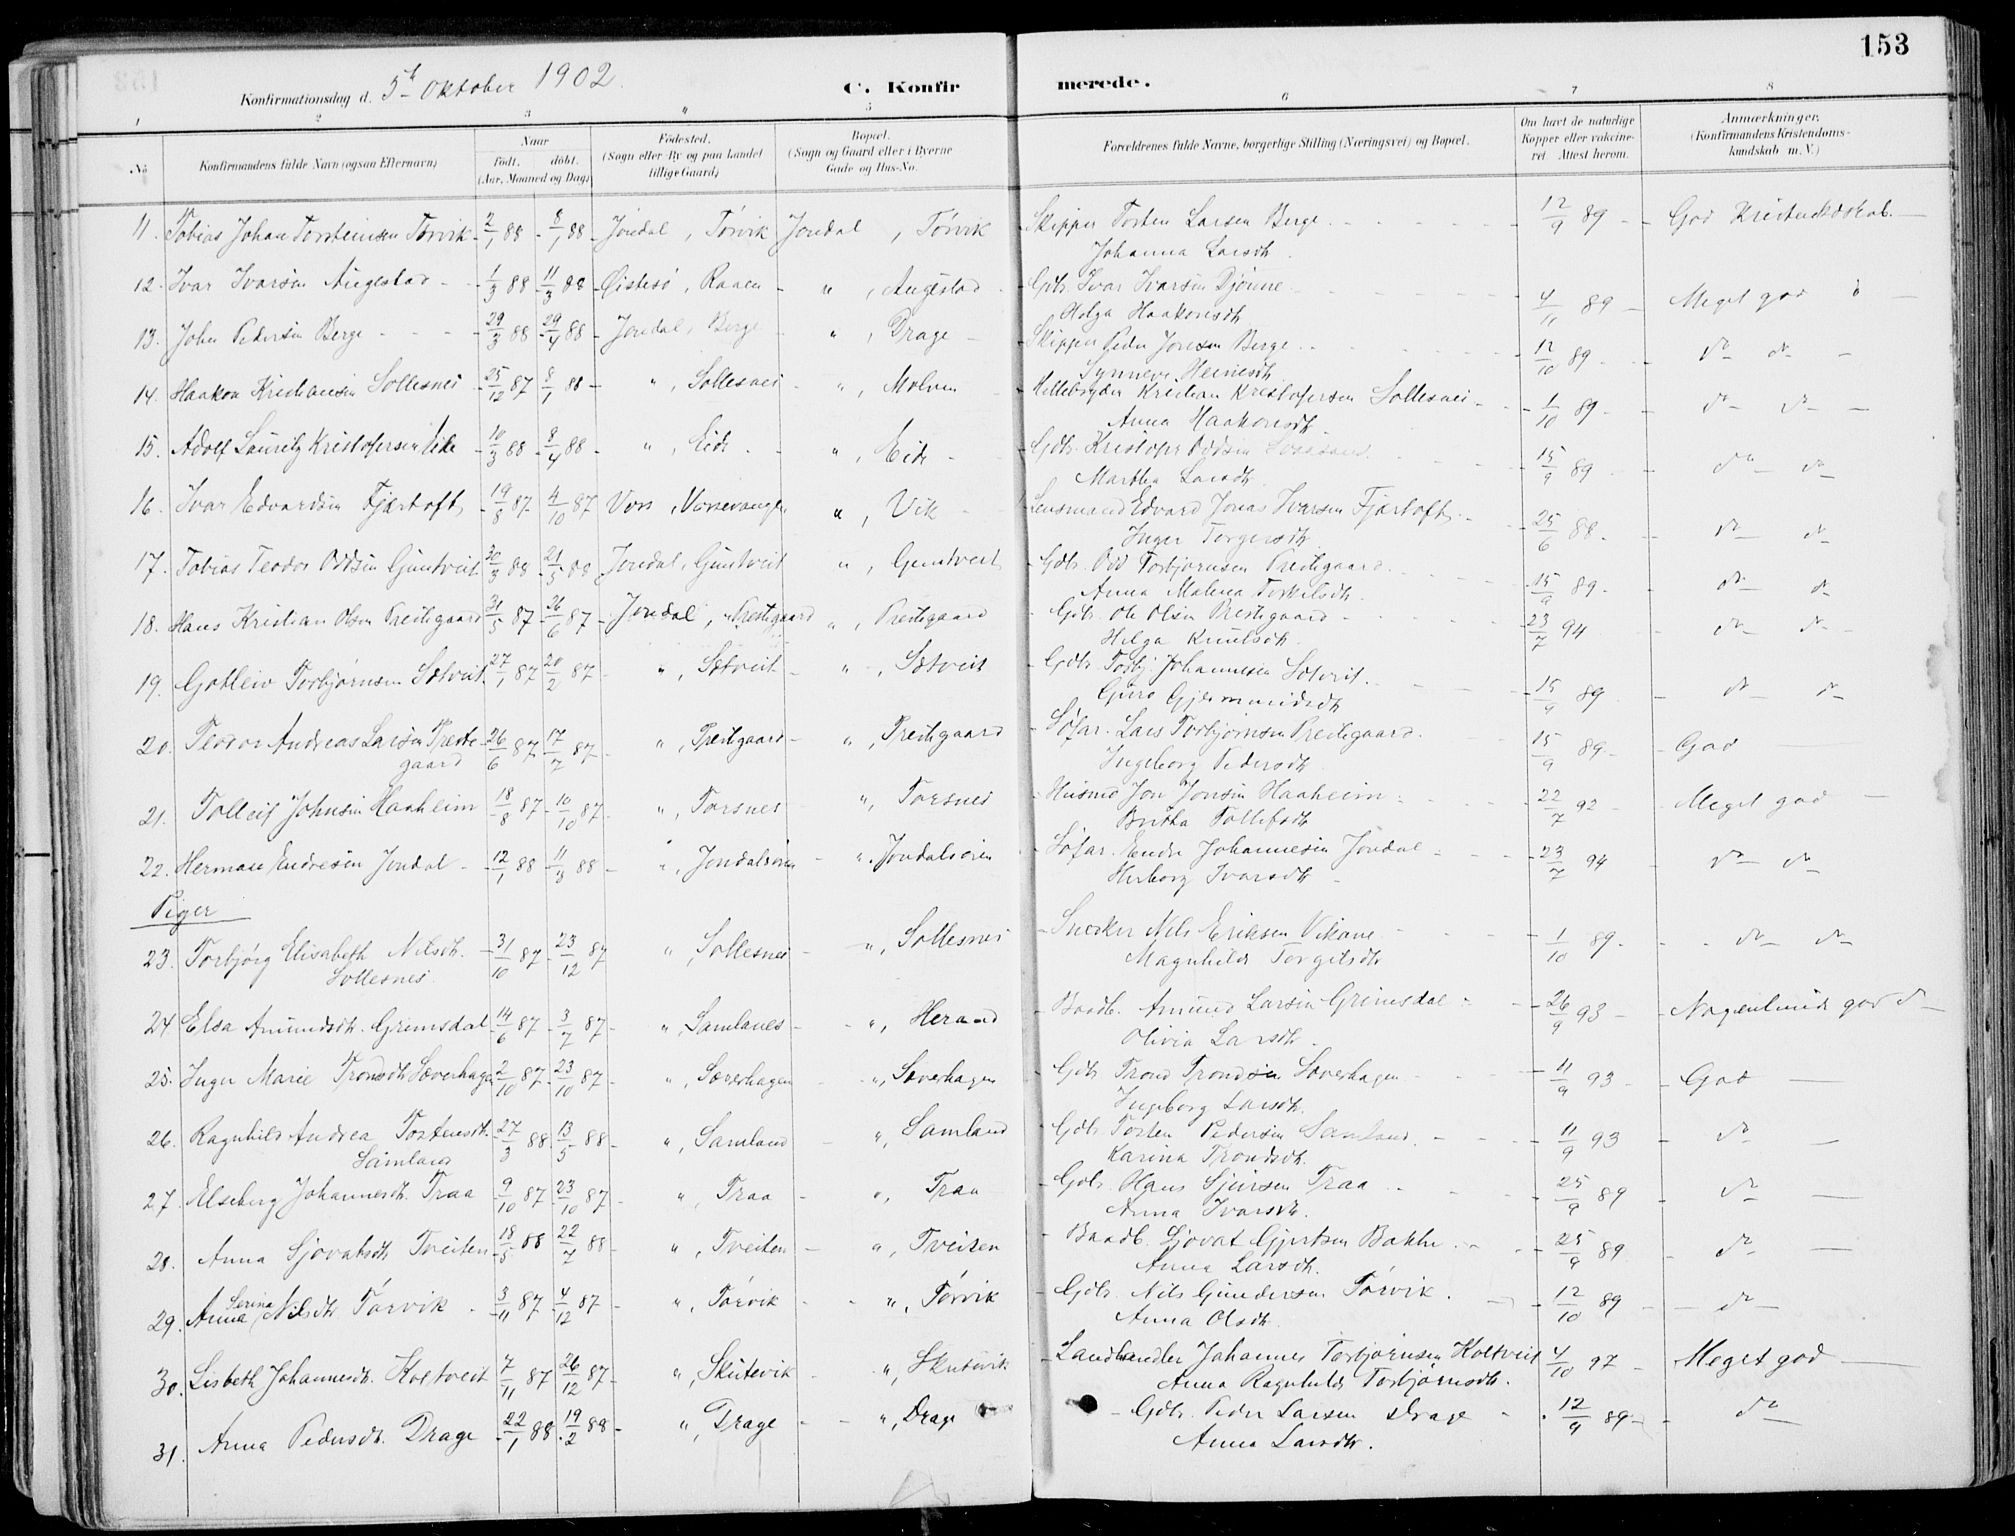 153
Konfirmationsdag d. 5te Oktober 1902.
C. Konfirmerede.
1 2 3 4 5 6 7 8
No
Konfirmandens fulde Navn (ogsaa Efternavn)
Naar
født. døbt.
(Aar, Maaned og Dag)
Fødested.
(Sogn eller By og paa Landet tillige Gaard)
Bopæl.
(Sogn og Gaard eller i Byerne Gade og Hus-No.
Forældrenes fulde Navne, borgerlige Stilling (Næringsvei) og Bopæl.
Om havt de naturlige Kopper eller vakcineret. Attest herom.
Anmærkninger.
(Konfirmandens Kristendomskundskab m. V.)
11. Tobias Johan Torsteinsen Tørvik 2/1 88 8/1 88 Jondal, Tørvik Jondal, Tørvik Skipper Torsten Larsen Berge 12/9 89 God Kristendsdskab.
Johanna Larsdt.
12. Ivar Ivarsen Augestad 1/3 88 11/3 88 Østesø, Raaen ", Augestad Gdbr. Ivar Ivarsen Djønne 4/11 89 Meget god do
Helga Haakonsdt
13. John Pedersen Berge 29/3 88 29/4 88 Jondal, Berge ", Drage Skipper Peder Jonsen Berge 12/10 89 do do
Synneve Heinesdt
14. Haakon Kristiansen Sollesnes 25/12 87 8/1 88 ", Sollesnes ", Molven Kristian Kristofersen Sollesnes 1/10 89 do do
Anna Haakonsdt
15. Adolf Lauritz Kristofersen Eide 10/3 88 8/4 88 ", Eide ", Eide Gdbr. Kristofer Oddsen 15/9 89 do do
Martha Larsdt.
16. Ivar Edvardsen Fjærtoft 19/8 87 4/10 87 Voss, Vossevangen ", Vik Lensmand Edvard Jonas Ivarsen Fjærtoft 25/6 88 do do
Inger Torgersdt.
17. Tobias Teodor Oddsen Guntveit 30/3 88 21/5 88 Jondal, Guntveit ", Guntveit Gdbr. Odd Torbjørnsen Prestegaard 15/9 89 do do
Anna Malena Torkilsdt.
18. Hans Kristian Olsen Prestegaard 31/5 87 26/6 87 Jondal, Prestegaard ", Prestegaard Gdbr. Ole Olsen Prestegaard 23/7 94 do do
Helga Knutsdt.
19. Gotleiv Torbjørnsen Sætveit 27/1 87 20/2 87 ", Sætveit ", Sætveit Gdbr. Torbj. Johannesen Sætveit 15/9 89 do do
Guro Gjermundsdt
20. Teodor Andreas Larsen Prestegaard 26/6 87 17/7 87 ", Prestegaard ", Prestegaard Søfar. Lars Torbjørnsen Prestegaard 15/9 89 God
Ingeborg Pedersdt.
21. Tolleif Johnsen Haaheim 18/8 87 10/10 87 ", Torsnes ", Torsnes Husmd Jon Jonsen Haaheim 22/7 92 Meget god
Britha Tollefsdt
22. Herman Endresen Jondal 12/1 88 11/3 88 ", Jondalsøren ", Jondalsøren Søfar. Endre Johannesen Jondal 23/7 94 do do
Herborg Ivarsdt
Piger
23. Torbjørg Elisabeth Nilsdt. Sollesnes 31/10 87 23/12 87 ", Sollesnes ", Sollesnes Snekker Nils Eriksen Vikane 1/10 89 do do
Magnhilde Torgilsdt
24 Elsa Amundsdt. Grimsdal 14/6 87 3/7 87 ", Samlanes ", Herand Baadb. Amund Larsen Grimsdal 26/9 93 Nogenlunde god do
Olivia Larsdt.
25. Inger Marie Trondsdt. Sæverhagen 2/10 87 23/10 87 ", Sæverhagen ", Sæverhagen Gdbr Trond Trondsen Sæverhagen 11/9 93 God
Ingeborg Larsdt.
26. Ragnhild Andrea Tostensdt. Samland 27/3 88 13/5 88 ", Samland ", Samland Gdbr. Tosten Pedersen Samland 11/9 93 do
Karina Trondsdt.
27. Elseberg Johannesdt. Traa 9/10 87 23/10 87 ", Traa ", Traa Gdbr. Hans Sjursen Traa 25/9 89 do
Anna Ivarsdt.
28. Anna Sjovatsdt Tveiten 18/5 88 22/7 88 ", Tveiten ", Tveiten Baadb. Sjovat Gjertsen Bakke 25/9 89 do
Anna Larsdt.
29. Anna Serina Nilsdt. Tørvik 3/11 87 4/12 87 ", Tørvik ", Tørvik Gdbr. Nils Gundersen Tørvik 12/10 89 do
Anna Olsdt.
30. Lisbeth Johannesdt. Koltveit 7/11 87 26/12 87 ", Skutevik ", Skutevik Landhandler Johannes Torbjørnsen Koltveit 4/10 97 Meget god
Anna Ragnhilde Torbjørnsdt.
31. Anna Pedersdt. Drage 22/1 88 19/2 88 ", Drage ", Drage Gdbr. Peder Larsen Drage 12/9 89 do
Anna Larsdt.